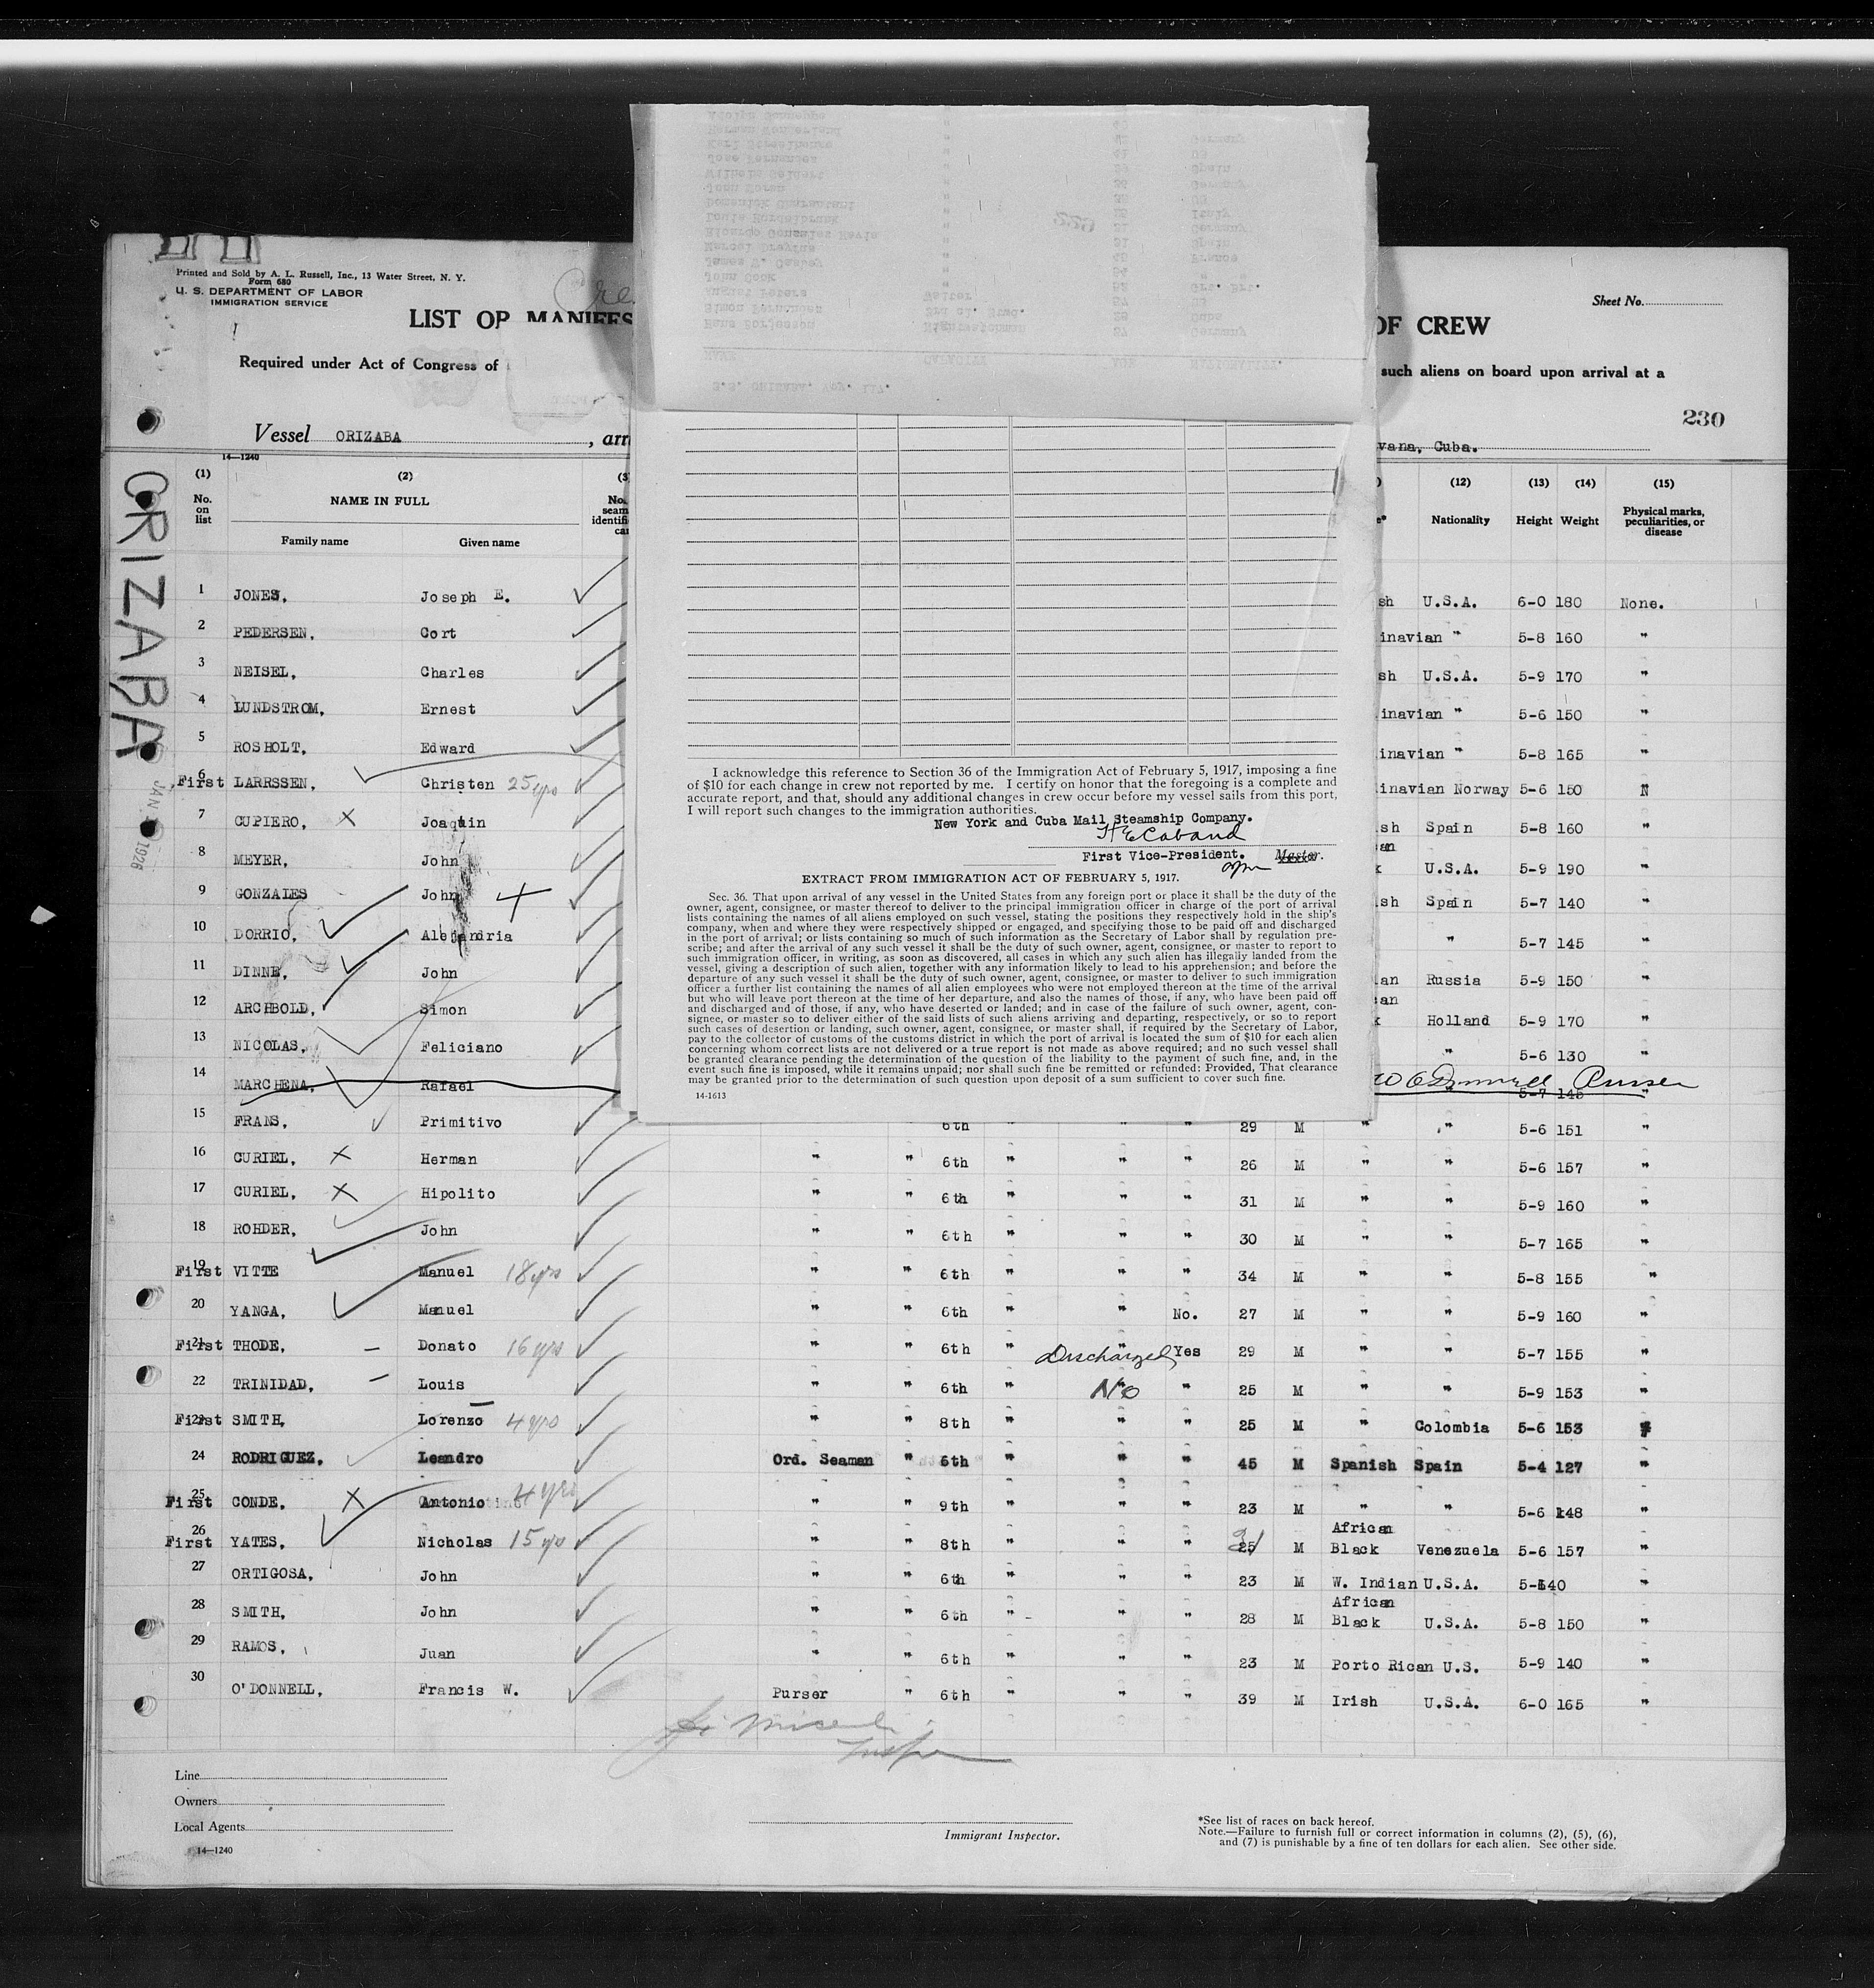 Printed and Sold by A. L. Russell, Inc., 13 Water Street, N. Y.
Form 680
U. S. DEPARTMENT OF LABOR
IMMIGRATION SERVICE
Sheet No.
LIST OR MANIFES
OF CREW
Required under Act of Congress of
such aliens on board upon arrival at a
230
Vessel ORIZABA , arri
vana, Cuba.
14—1240
ORIZABA
JAN 1926
(1) (2) (3 (12) (13) (14) (15)
No. on list NAME IN FULL Nationality Height Weight Physical marks, peculiarities, or disease
Family name Given name
1 JONES, Joseph E. sh U.S.A. 6-0 180 None.
2 PEDERSEN, Cort inavian " 5-8 160 "
3 NEISEL, Charles sh U.S.A. 5-9 170 "
4 LUNDSTROM, Ernest inavian " 5-6 150 "
5 ROSHOLT, Edward inavian " 5-8 165 "
6 First LARRSSEN, Christen 25 yrs inavian Norway 5-6 150 "
7 CUPIERO, X Joaquin sh Spain 5-8 160 "
8 MEYER, John an k U.S.A. 5-9 190 "
9 GONZALES John sh Spain 5-7 140 "
10 DORRIO, Alejandria " 5-7 145 "
11 DINNE, John an Russia 5-9 150 "
12 ARCHBOLD, Simon an k Holland 5-9 170 "
13 NICOLAS, Feliciano " 5-6 130 "
14 MARCHENA, Rafael W O'Donnell Purser 5-7 145 "
15 FRANS, Primitivo 6th " " " 29 M " " 5-6 151 "
16 CURIEL, X Herman " " 6th " " " 26 M " " 5-6 157 "
17 CURIEL, X Hipolito " " 6th " " " 31 M " " 5-9 160 "
18 ROHDER, John " " 6th " " " 30 M " " 5-7 165 "
19 First VITTE Manuel 18 yrs " " 6th " " " 34 M " " 5-8 155 "
20 YANGA, Manuel " " 6th " " No. 27 M " " 5-9 160 "
21 First THODE, – Donato 16 yrs " " 6th " Discharged " Yes 29 M " " 5-7 155 "
22 TRINIDAD, – Louis " " 6th " No " 25 M " " 5-9 153 "
23 First SMITH, Lorenzo 4 yrs " " 8th " " " 25 M " Colombia 5-6 153 "
24 RODRIGUEZ, Leandro Ord. Seaman " 6th " " " 45 M Spanish Spain 5-4 127 "
25 First CONDE, X Antonio 4 yrs " " 9th " " " 23 M " " 5-6 148 "
26 First YATES, Nicholas 15 yrs " " 8th " " " 25 M African Black Venezuela 5-6 157 "
27 ORTIGOSA, John " " 6th " " " 23 M W. Indian U.S.A. 140 "
28 SMITH, John " " 6th " " " 28 M African Black U.S.A. 5-8 150 "
29 RAMOS, Juan " " 6th " " " 23 M Porto Rican U.S. 5-9 140 "
30 O'DONNELL, Francis W. Purser " 6th " " " 39 M Irish U.S.A. 6-0 165 "
Line
Owners
Local Agents
14—1240
Immigrant Inspector.
*See list of races on back hereof.
Note.—Failure to furnish full or correct information in columns (2), (5), (6),
and (7) is punishable by a fine of ten dollars for each alien. See other side.
I acknowledge this reference to Section 36 of the Immigration Act of February 5, 1917, imposing a fine
of $10 for each change in crew not reported by me. I certify on honor that the foregoing is a complete and
accurate report, and that, should any additional changes in crew occur before my vessel sails from this port,
I will report such changes to the immigration authorities.
New York and Cuba Mail Steamship Company.
First Vice-President. Master.
EXTRACT FROM IMMIGRATION ACT OF FEBRUARY 5, 1917.
Sec. 36. That upon arrival of any vessel in the United States from any foreign port or place it shall be the duty of the
owner, agent, consignee, or master thereof to deliver to the principal immigration officer in charge of the port of arrival
lists containing the names of all aliens employed on such vessel, stating the positions they respectively hold in the ship's
company, when and where they were respectively shipped or engaged, and specifying those to be paid off and discharged
in the port of arrival; or lists containing so much of such information as the Secretary of Labor shall by regulation pre-
scribe; and after the arrival of any such vessel it shall be the duty of such owner, agent, consignee, or master to report to
such immigration officer, in writing, as soon as discovered, all cases in which any such alien has illegally landed from the
vessel, giving a description of such alien, together with any information likely to lead to his apprehension; and before the
departure of any such vessel it shall be the duty of such owner, agent, consignee, or master to deliver to such immigration
officer a further list containing the names of all alien employees who were not employed thereon at the time of the arrival
but who will leave port thereon at the time of her departure, and also the names of those, if any, who have been paid off
and discharged and of those, if any, who have deserted or landed; and in case of the failure of such owner, agent, con-
signee, or master so to deliver either of the said lists of such aliens arriving and departing, respectively, or so to report
such cases of desertion or landing, such owner, agent, consignee, or master shall, if required by the Secretary of Labor,
pay to the collector of customs of the customs district in which the port of arrival is located the sum of $10 for each alien
concerning whom correct lists are not delivered or a true report is not made as above required; and no such vessel shall
be granted clearance pending the determination of the question of the liability to the payment of such fine, and, in the
event such fine is imposed, while it remains unpaid; nor shall such fine be remitted or refunded: Provided, That clearance
may be granted prior to the determination of such question upon deposit of a sum sufficient to cover such fine.
14-1613